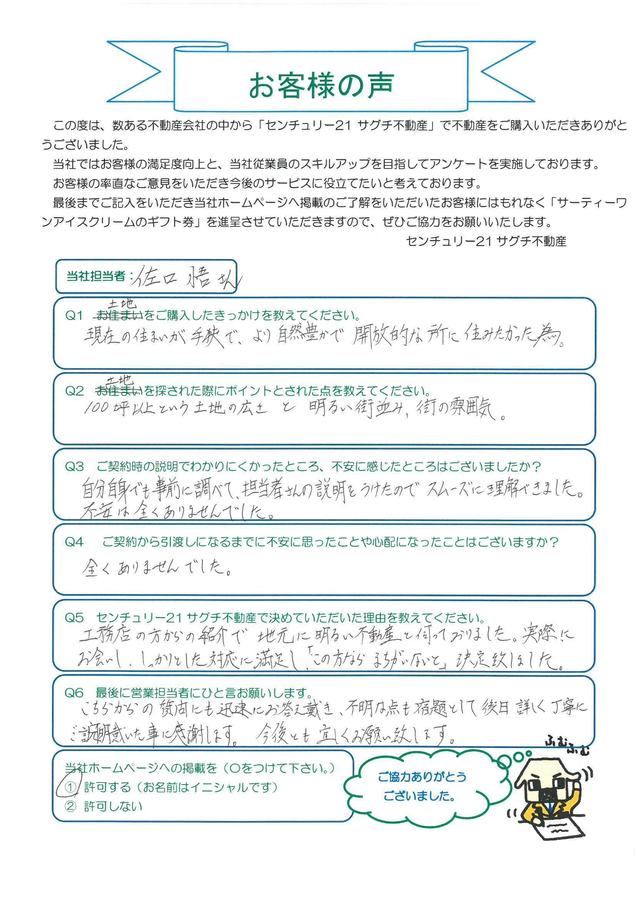 お客様の声
この度は、数ある不動産会社の中から「センチュリー21 サグチ不動産」で不動産をご購入いただきありがと
うございました。
当社ではお客様の満足度向上と、当社従業員のスキルアップを目指してアンケートを実施しております。
お客様の率直なご意見をいただき今後のサービスに役立てたいと考えております。
最後までご記入をいただき当社ホームページへ掲載のご了解をいただいたお客様にはもれなく「サーティーワ
ンアイスクリームのギフト券」を進呈させていただきますので、ぜひご協力をお願いいたします。
センチュリー21 サグチ不動産
当社担当者：佐口 悟さん
土地
Q1 お住まいをご購入したきっかけを教えてください。
現在の住まいが手狭で、より自然豊かで開放的な所に住みたかった為。
土地
Q2 お住まいを探された際にポイントとされた点を教えてください。
100坪以上という土地の広さと 明るい街並み、街の雰囲気。
Q3 ご契約時の説明でわかりにくかったところ、不安に感じたところはございましたか？
自分自身でも事前に調べて、担当者さんの説明をうけたのでスムーズに理解できました。
不安は全くありませんでした。
Q4 ご契約から引渡しになるまでに不安に思ったことや心配になったことはございますか？
全くありませんでした。
Q5 センチュリー21 サグチ不動産で決めていただいた理由を教えてください。
工務店の方からの紹介で 地元に明るい不動産と伺っておりました。実際に
お会いし、しっかりとした対応に満足し、「この方なら まちがいないと」決定致しました。
Q6 最後に営業担当者にひと言お願いします。
こちらからの質問にも迅速にお答え戴き、不明な点も宿題として後日詳しく丁寧に
ご説明戴いた事に感謝します。 今後とも宜しくお願い致します。
当社ホームページへの掲載を（○をつけて下さい。）
① 許可する（お名前はイニシャルです）
② 許可しない
ご協力ありがとう
ございました。
ふむふむ